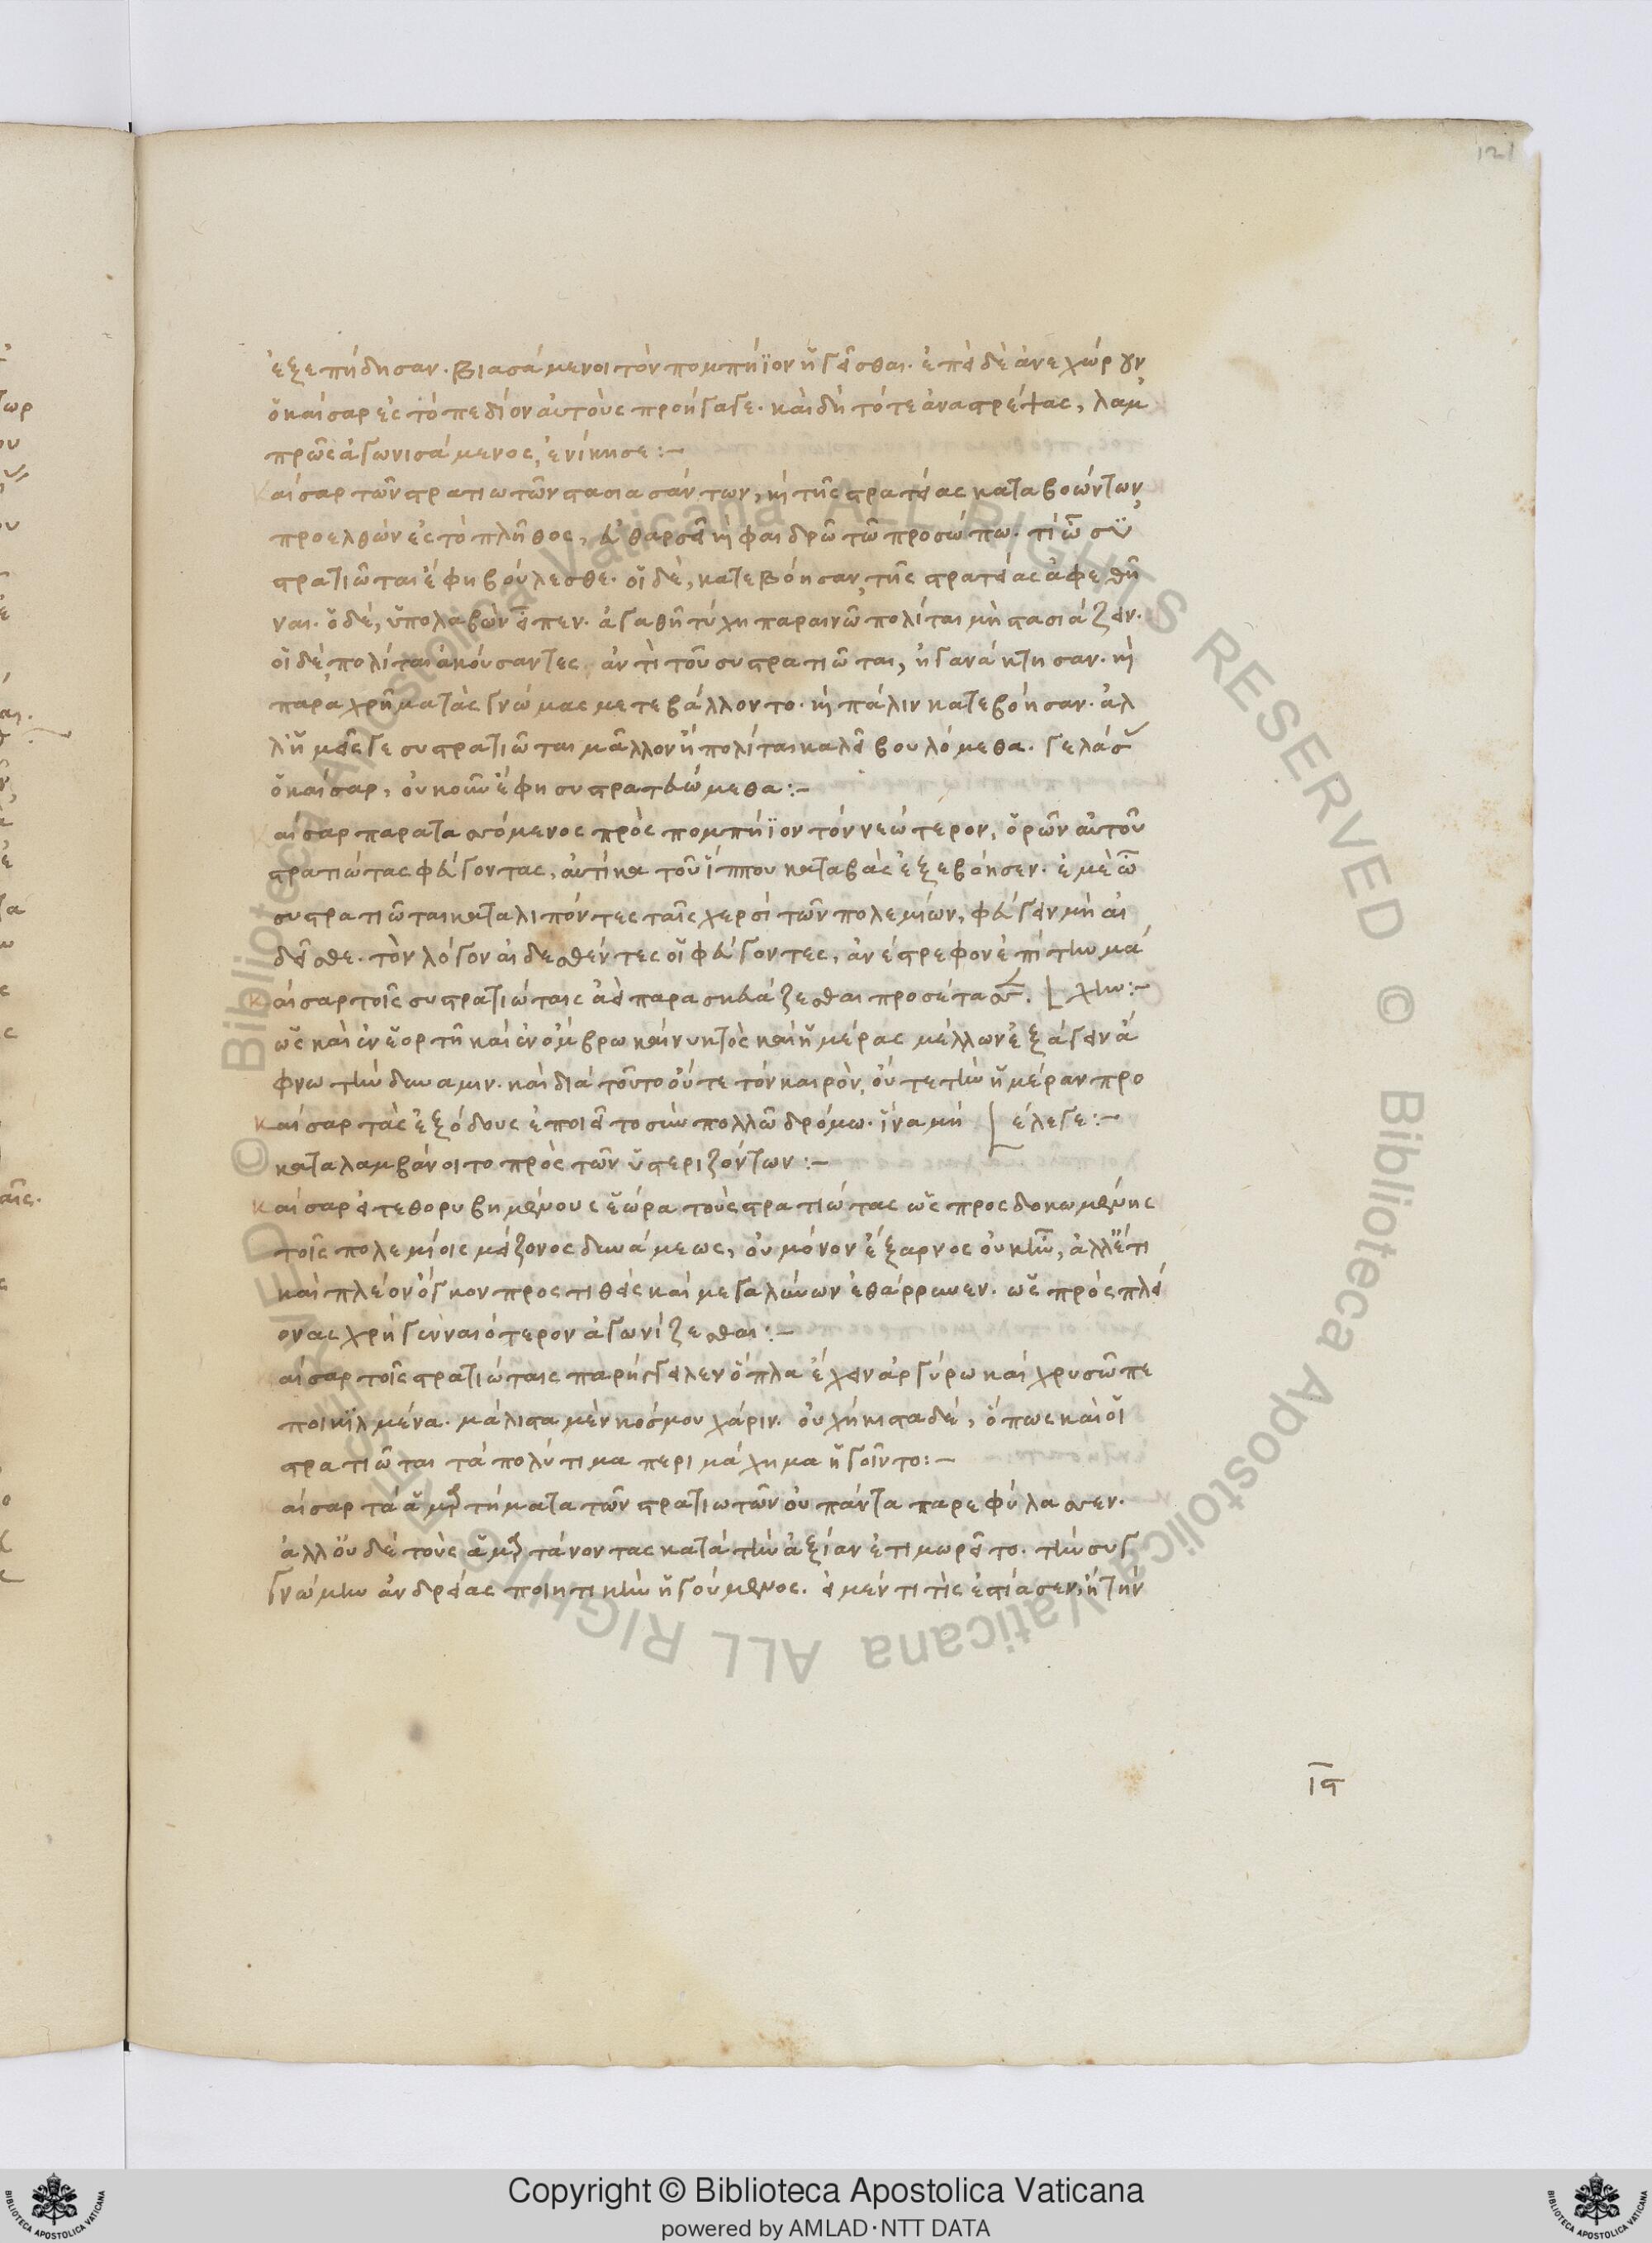 121
ἐξεπήδησαν. βιασάμενοι τὸν πομπήϊον ἡγεῖσθαι. ἐπεὶ δὲ ἀνεχώρουν
ὁ καίσαρ ἐς τὸ πεδίον αὐτοὺς προήγαγε. καὶ δὴ τότε ἀναστρέψας, λαμ
πρῶς ἀγωνισάμενος, ἐνίκησε :-
Καίσαρ τῶν στρατιωτῶν στασιασάντων, καὶ τῆς στρατείας καταβοώντων,
προελθὼν ἐς τὸ πλῆθος, εὐθαρσεῖ καὶ φαιδρῶ τῶ προσώπω. τί ὦ συ
στρατιῶται ἔφη βούλεσθε. οἱ δὲ, κατεβόησαν, τῆς στρατείας ἀφεθῆ
ναι. ὁ δὲ, ὑπολαβὼν εἶπεν. ἀγαθῆ τύχη παραινῶ πολίται μὴ στασιάζειν.
οἱ δὲ πολίται ἀκούσαντες ἀντὶ τοῦ συστρατιῶται, ἠγανάκτησαν. καὶ
παραχρῆμα τὰς γνώμας μετεβάλλοντο. καὶ πάλιν κατεβόησαν. ἀλ
λ' ἡμεῖς γε συστρατιῶται μᾶλλον ἢ πολίται καλεῖ βουλόμεθα. γελάσας
ὁ καίσαρ, οὐκοῦν ἔφη συστρατευώμεθα :-
Καίσαρ παραταττόμενος πρὸς πομπήϊον τὸν νεώτερον, ὁρῶν αὐτοῦ
στρατιώτας φεύγοντας, αὐτίκα τοῦ ἵππου καταβὰς ἐξεβόησεν. ἐμὲ ὦ
συστρατιῶται καταλιπόντες ταῖς χερσὶ τῶν πολεμίων, φεύγειν μὴ αἰ
δεῖσθε. τὸν λόγον αἰδεσθέντες οἱ φεύγοντες, ἀνέστρεφον ἐπὶ τὴν μά
Καίσαρ τοῖς συστρατιώταις ἀεὶ παρασκευάζεσθαι προσέταττεν. [χην :-
ὡς καὶ ἐν ἑορτῆ καὶ ἐν ὄμβρω καὶ νυκτὸς καὶ ἡμέρας μέλλων ἐξάγειν ἄ
φνω τὴν δύναμιν. καὶ διὰ τοῦτο οὔτε τὸν καιρὸν, οὔτε τὴν ἡμέραν προ
Καίσαρ τὰς ἐξόδους ἐποιεῖτο σὺν πολλῶ δρόμω. ἵνα μὴ [έλεγε :-
καταλαμβάνοιτο πρὸς τῶν ὑστεριζόντων :-
Καίσαρ εἰ τεθορυβημένους ἑώρα τοὺς στρατιώτας ὡς προσδοκωμένης
τοῖς πολεμίοις μείζονος δυνάμεως, οὐ μόνον ἔξαρνος οὐκ ἦν, ἀλλ' ἔτι
καὶ πλέον ὄγκον προστιθεὶς καὶ μεγαλύνων ἐθάρρυνεν. ὡς πρὸς πλεί
ονας χρὴ γενναιότερον ἀγωνίζεσθαι :-
Καίσαρ τοῖς στρατιώταις παρήγγειλεν ὅπλα ἔχειν ἀργύρω καὶ χρυσῶ πε
ποικιλμένα. μάλιστα μὲν κόσμου χάριν. οὐχ ἥκιστα δὲ, ὅπως καὶ οἱ
στρατιῶται τὰ πολύτιμα περιμάχημα ἡγοῖντο :-
Καίσαρ τὰ ἁμαρτήματα τῶν στρατιωτῶν οὐ πάντα παρεφύλαττεν.
ἀλλ' οὐδὲ τοὺς ἁμαρτάνοντας κατὰ τὴν ἀξίαν ἐτιμωρεῖτο. τὴν συγ
γνώμην ἀνδρείας ποιητικὴν ἡγούμενος. εἰ μέντι τὶς ἐστίασεν, ἢ τὴν
ις
Copyright © Biblioteca Apostolica Vaticana
powered by AMLAD·NTT DATA